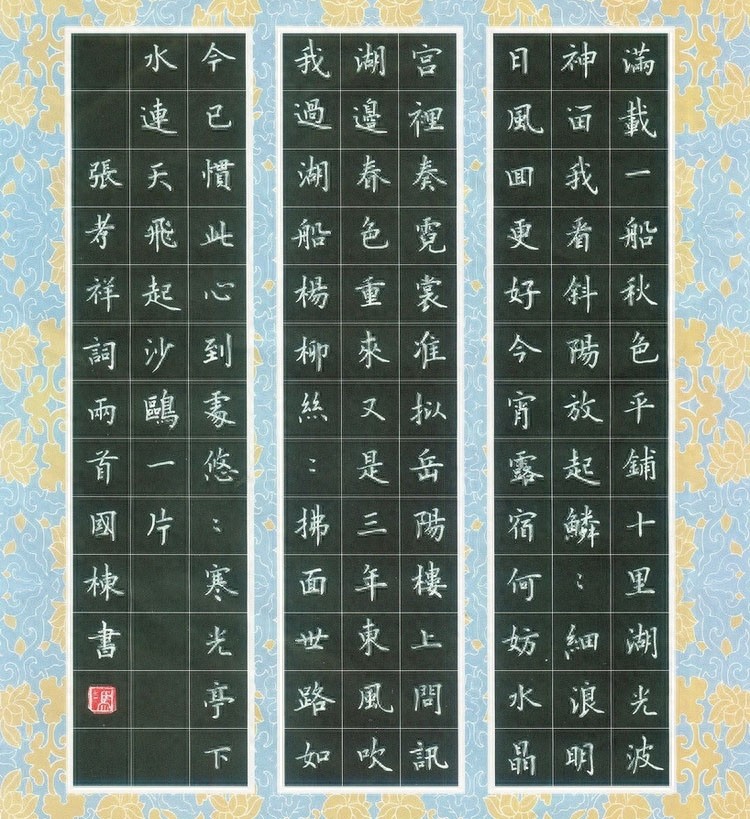 滿載一船秋色平鋪十里湖光波
神留我看斜陽放起鱗：細浪明
日風囬更好今宵露宿何妨水晶
宮裡奏霓裳准拟岳陽樓上問訊
湖邊春色重來又是三年東風吹
我過湖船楊柳絲：拂面世路如
今已慣此心到處悠：寒光亭下
水連天飛起沙鷗一片
張孝祥詞兩首國棟書